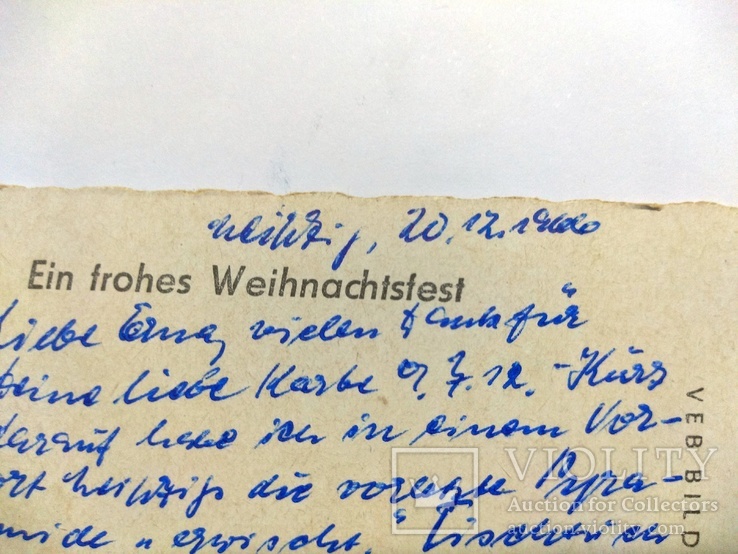 Leipzig, 20.12.1960
Ein frohes Weihnachtsfest
Liebe Erna, vielen Dank für
Deine liebe Karte v. 7.12. - Kurz
darauf habe ich in einem Vor-
ort Leipzigs die vorletzte Pyra-
mide "erwischt."
VEB BILD
VIOLITY
Auction for Collectors
auction.violity.com